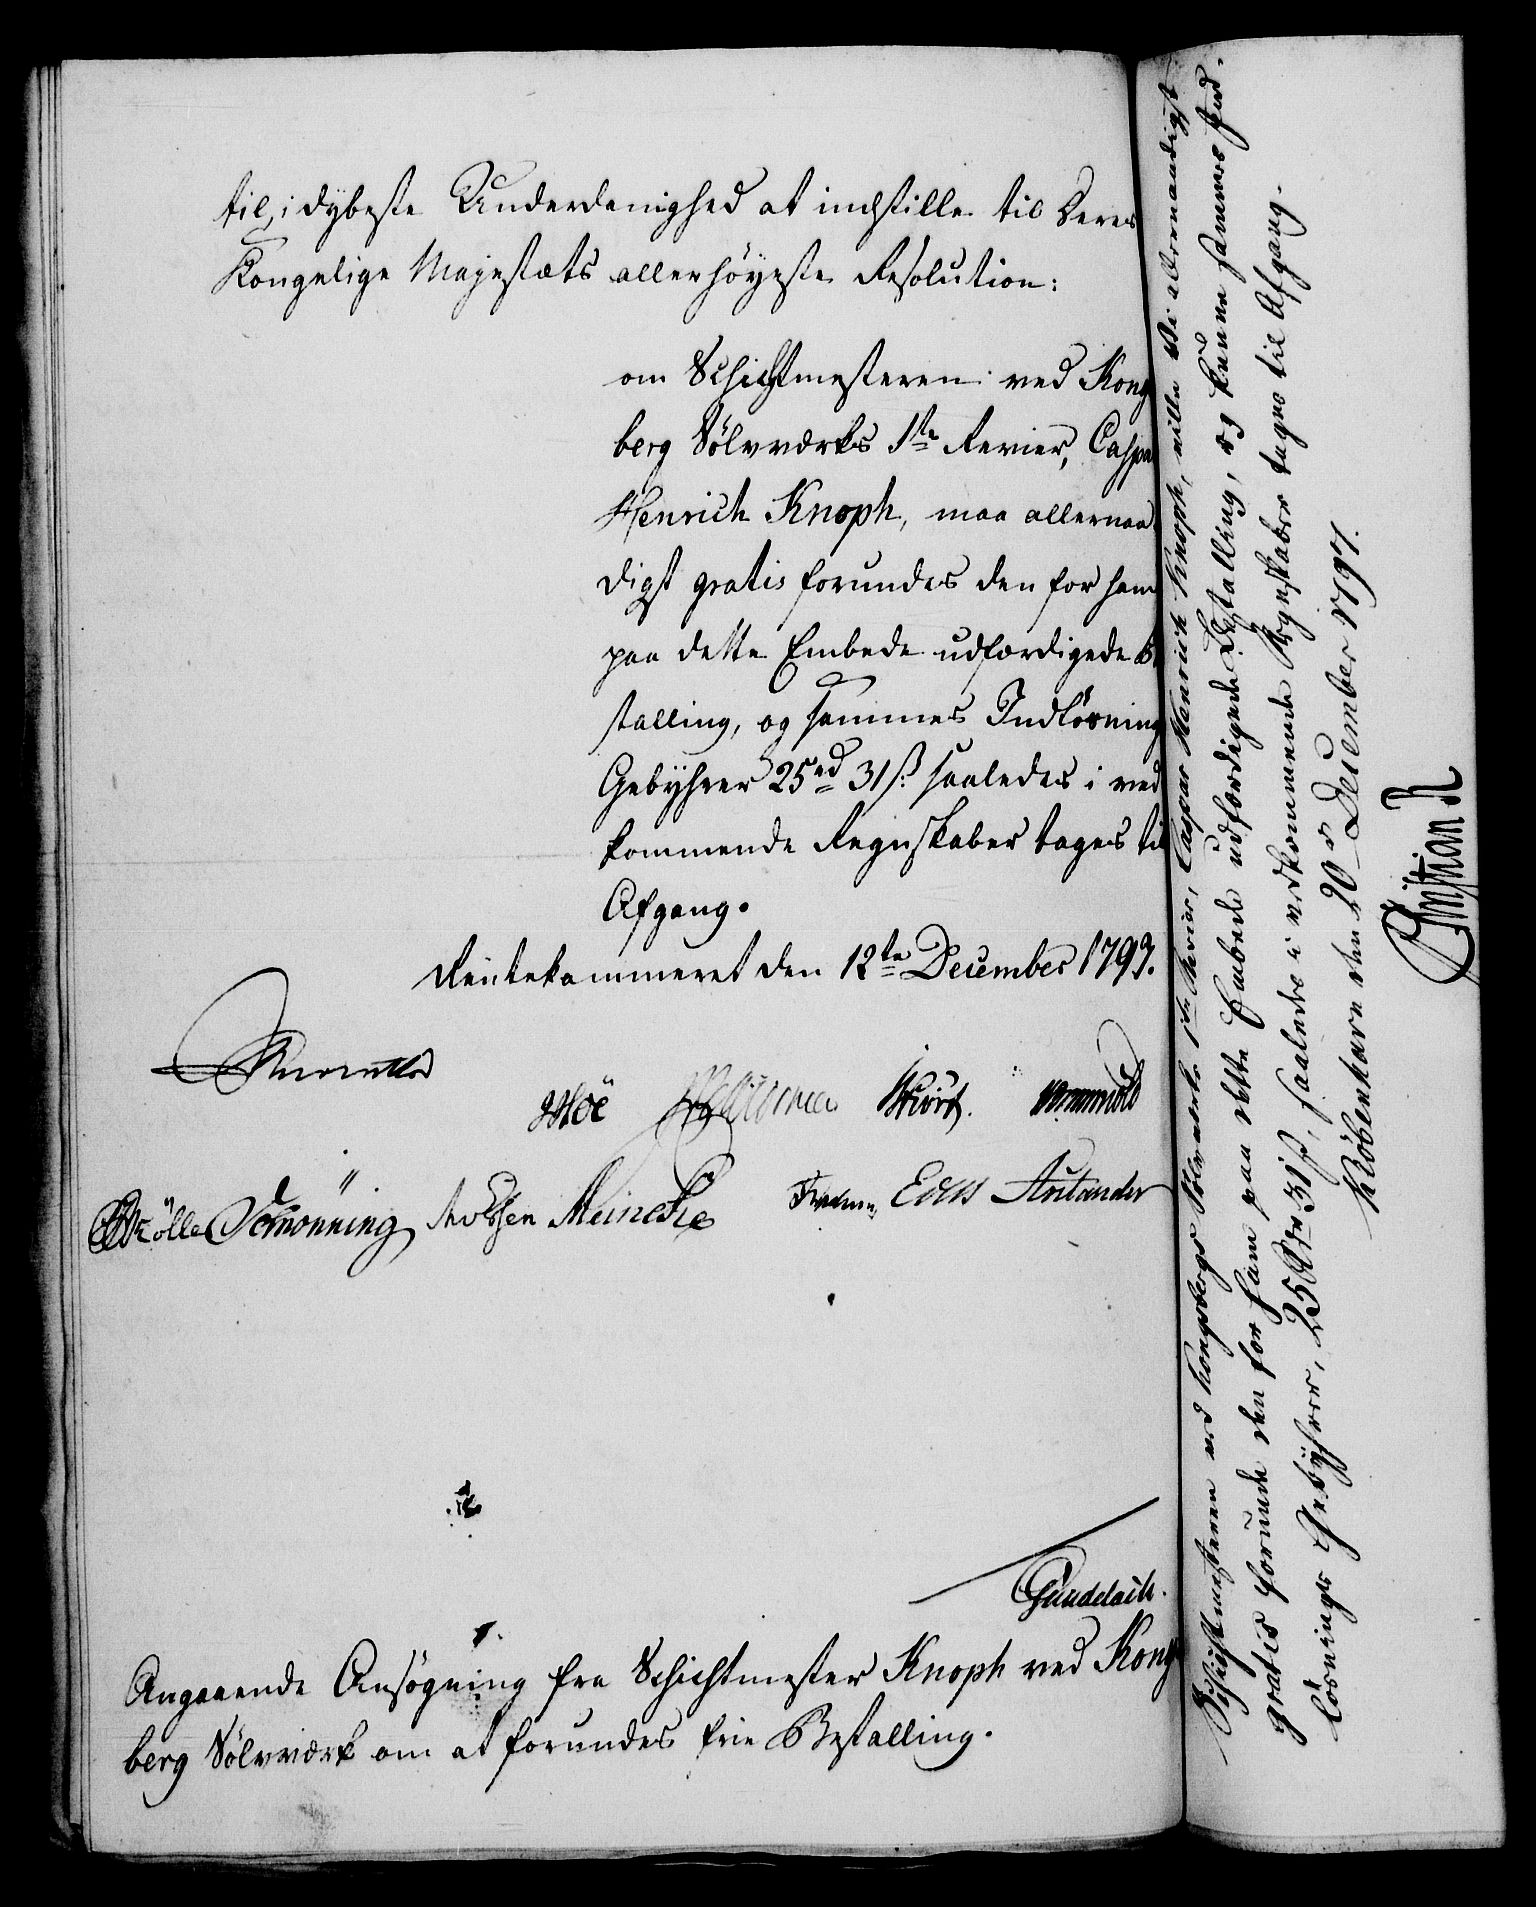 til, i dybeste Underdanighed at indstille til Deres
Kongelige Majestæts allerhöyeste Resolution:
om Schichtmesteren ved Kong
berg Sölvværks 1ste Revier, Caspa
Henrich Knoph, maa allernaa
digst gratis forundes den for ham
paa dette Embede udfærdigede Be
stalling, og sammes Indlösning
Gebyhrer 25 rd 31 ß: saaledes i ved
kommende Regnskaber tages til
Afgang.
Rentekammeret den 12te December 1797.
Moë
Wormskiold
Schönning Meincke
Eeus Arctander
Gundelach.
Angaaende Ansögning fra Schichtmester Knoph ved Kong
berg Sölvværk om at forundes frie Bestalling.
Schichtmesteren ved Kongsbergs Sölvværks 1ste Revier, Caspar Henrich Knoph, ville Vi allernaadigst
gratis forunde den for ham paa dette Embede udfærdigede Bestalling, og kunne sammes Ind-
lösnings Gebÿhrer, 25 Rdr 31 ß, saaledes i vedkommende Regnskaber tages til Afgang.
Kiöbenhavn den 20de December 1797.
Christian R